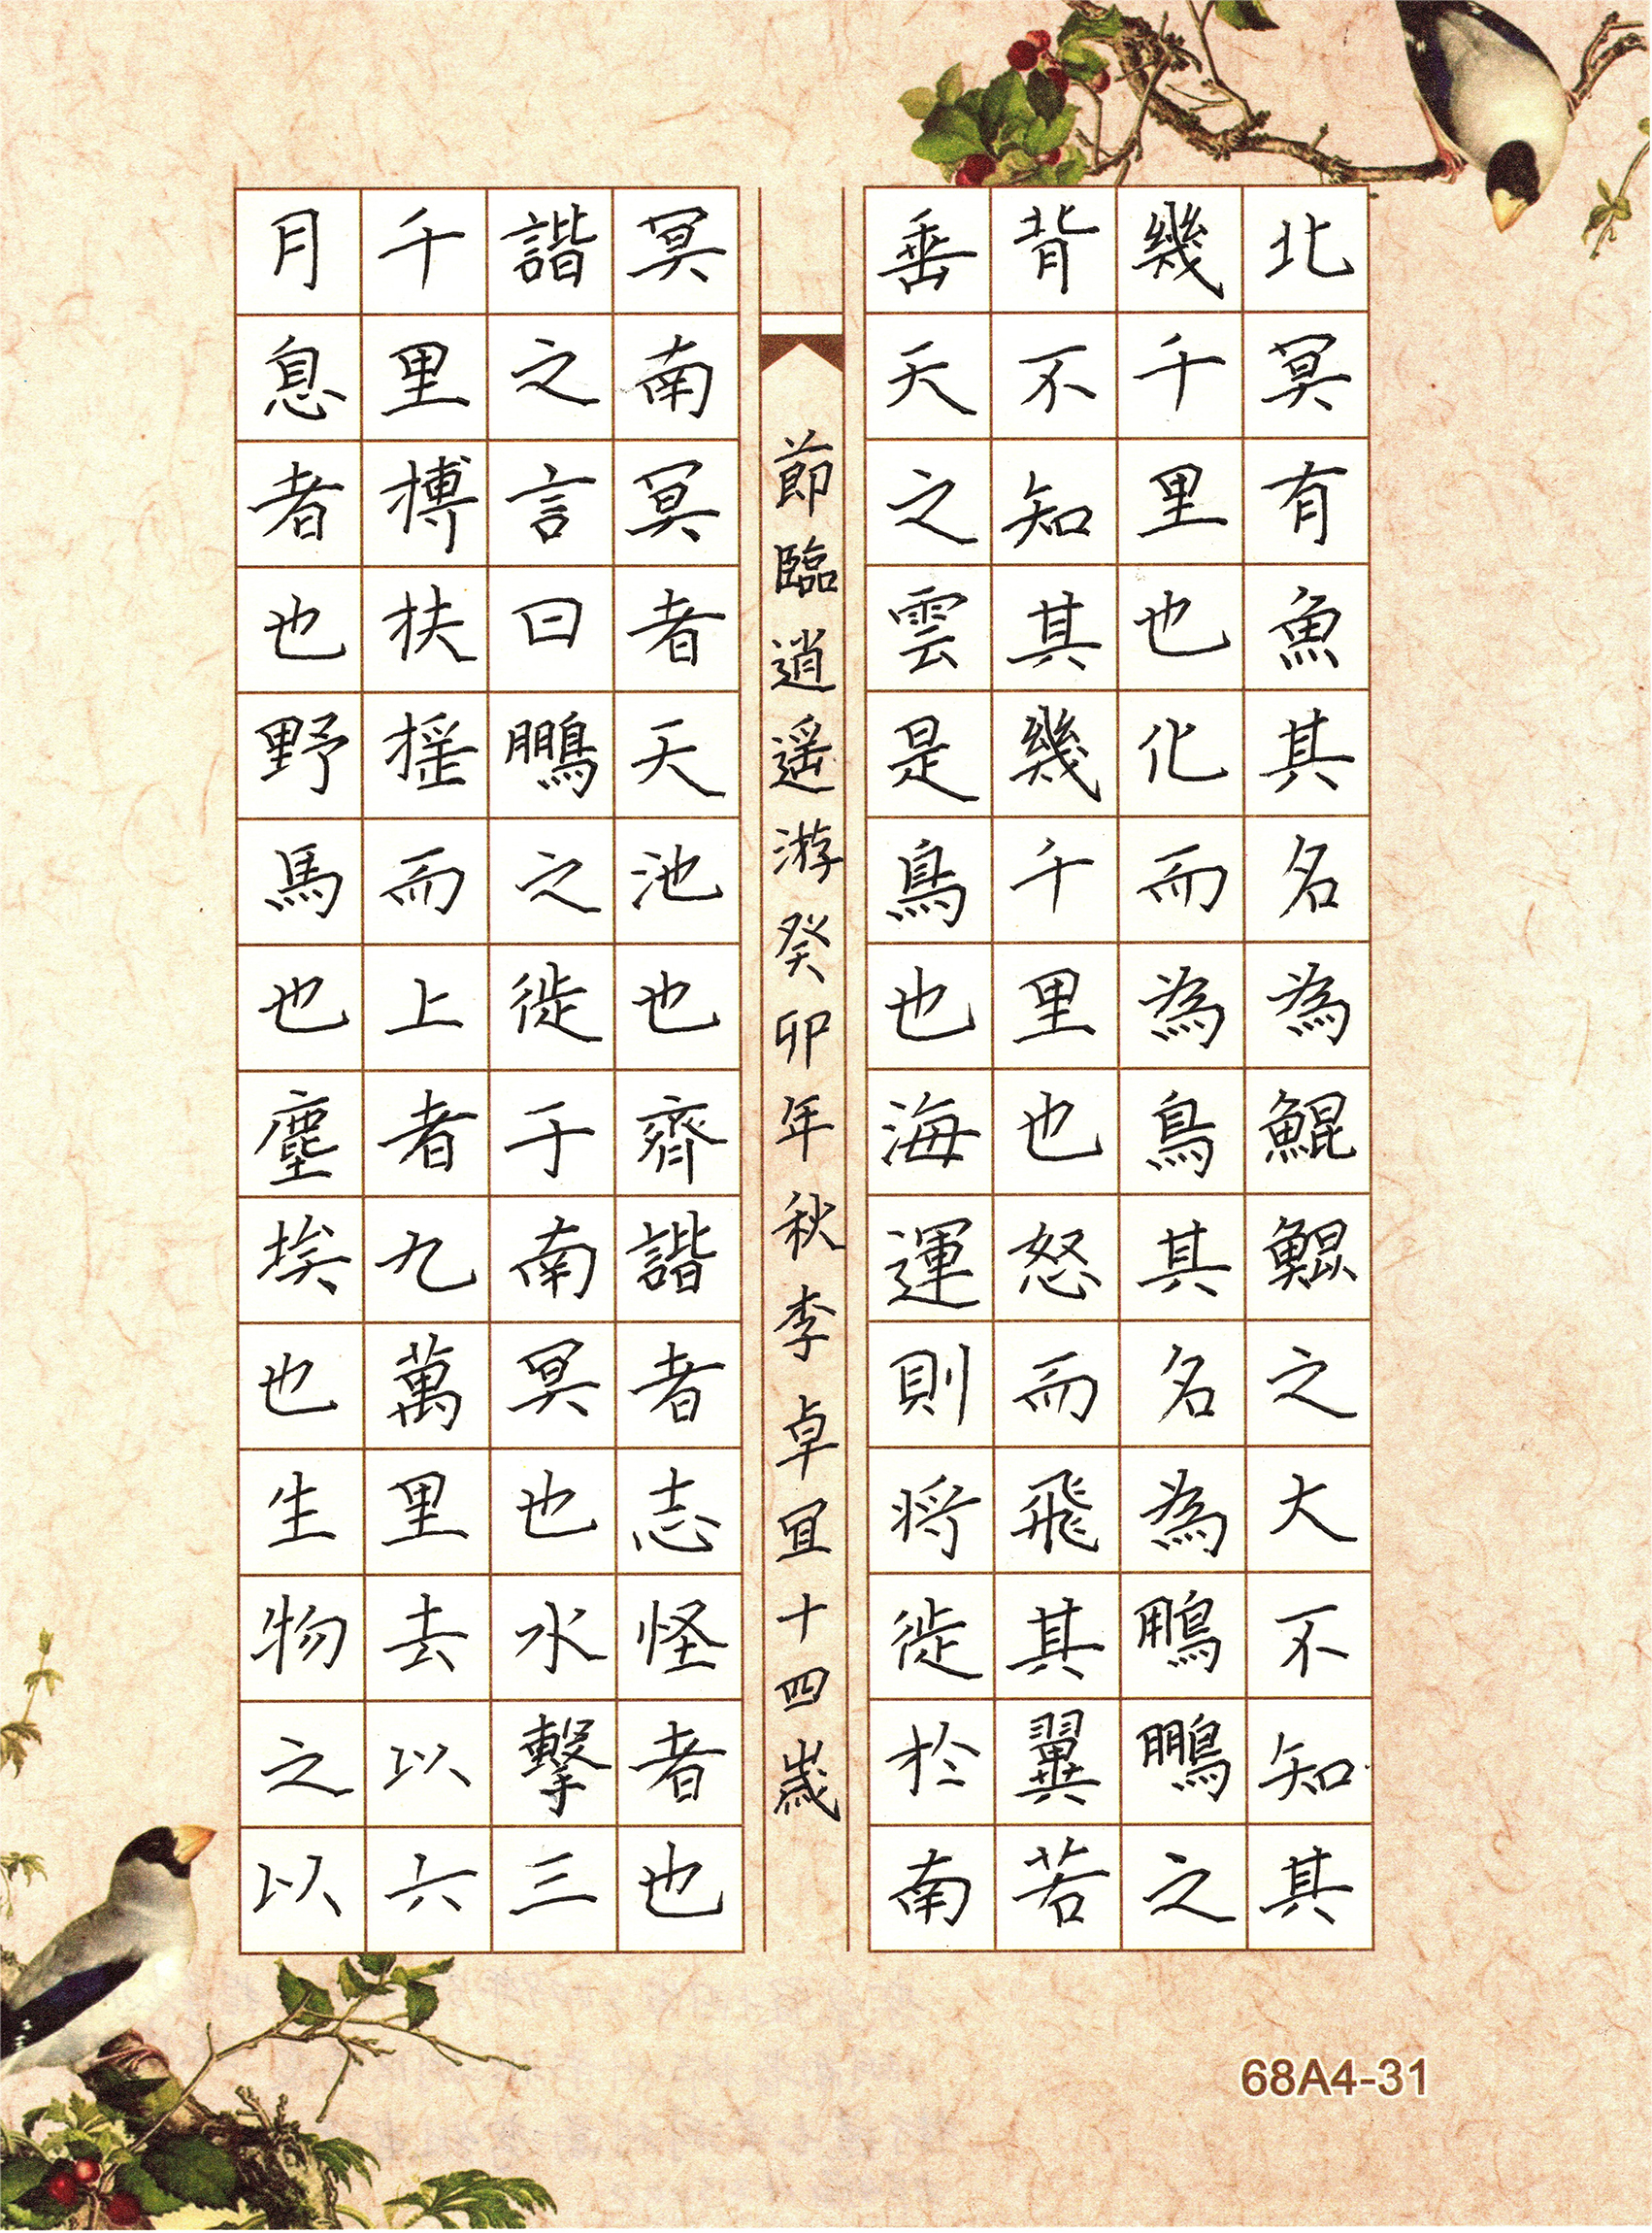 北冥有魚其名為鯤鯤之大不知其
幾千里也化而為鳥其名為鵬鵬之
背不知其幾千里也怒而飛其翼若
垂天之雲是鳥也海運則將徙於南
節臨逍遥游癸卯年秋李卓宜十四歲
冥南冥者天池也齊諧者志怪者也
諧之言曰鵬之徙于南冥也水擊三
千里摶扶摇而上者九萬里去以六
月息者也野馬也塵埃也生物之以
68A4-31